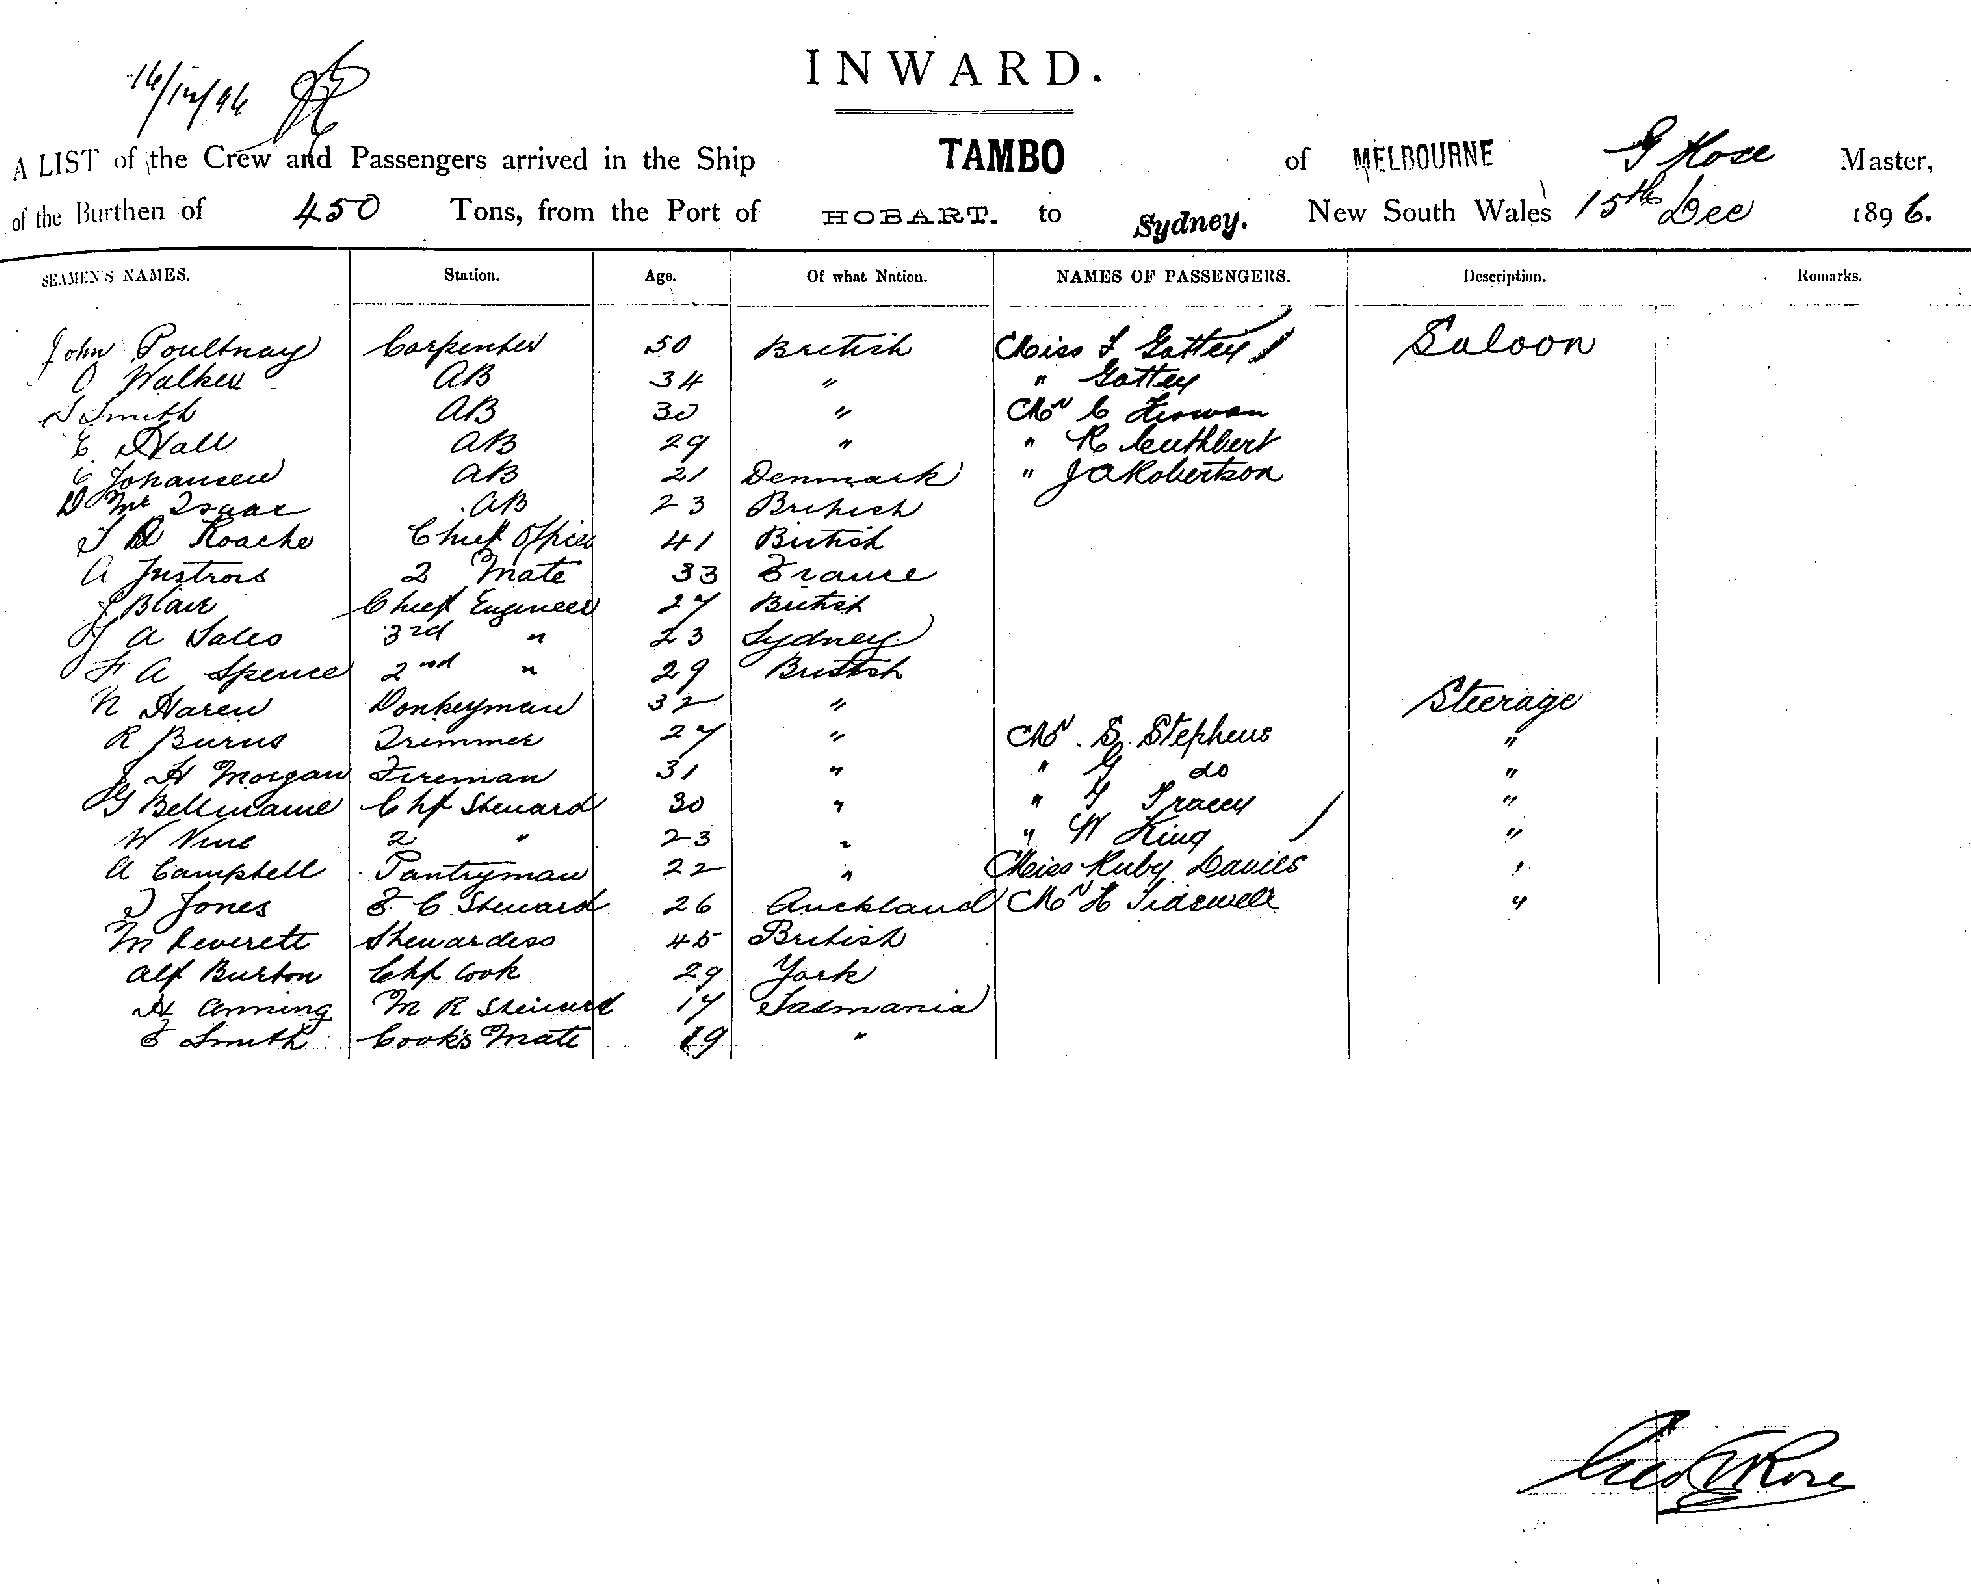 INWARD.
16/12/96
A LIST of the Crew and Passengers arrived in the Ship TAMBO of MELBOURNE G Rose Master,
of the Burthen of 450 Tons, from the Port of HOBART. to Sydney. New South Wales 15th Dec 1896.
SEAMEN'S NAMES. Station. Age. Of what Nation. NAMES OF PASSENGERS. Description. Remarks.
John Poultnay Carpenter 50 British Miss F Gattey Saloon
O Walker AB 34 " " Gattey
S Smith AB 30 " Mr C
E. Hall AB 29 " " R Cuthbert
C Johansen AB 21 Denmark " J A Robertson
D Mc Isaac AB 23 British
Roache Chief Officer 41 British
A 2 Mate 33 France
J Blair Chief Engineer 27 British
J A Sales 3rd " 23 Sydney
F A Spence 2nd " 29 British
N Haren Donkeyman 32 " Steerage
R Burns Trimmer 27 " Mr. S. Stephens "
J H Morgan Fireman 31 " " G do "
G Bellmaine Chf Steward 30 " " Tracey "
W Vine 2 " 23 " " W King "
A Campbell Pantryman 22 " Miss Ruby Davies "
Jones F C Steward 26 Auckland Mr H Tidswell "
M Leverett Stewardess 45 British
Alf Burton Chf Cook 29 York
H Anning M R Steward 17 Tasmania
E Smith Cook's Mate 19 "
Geo Rose